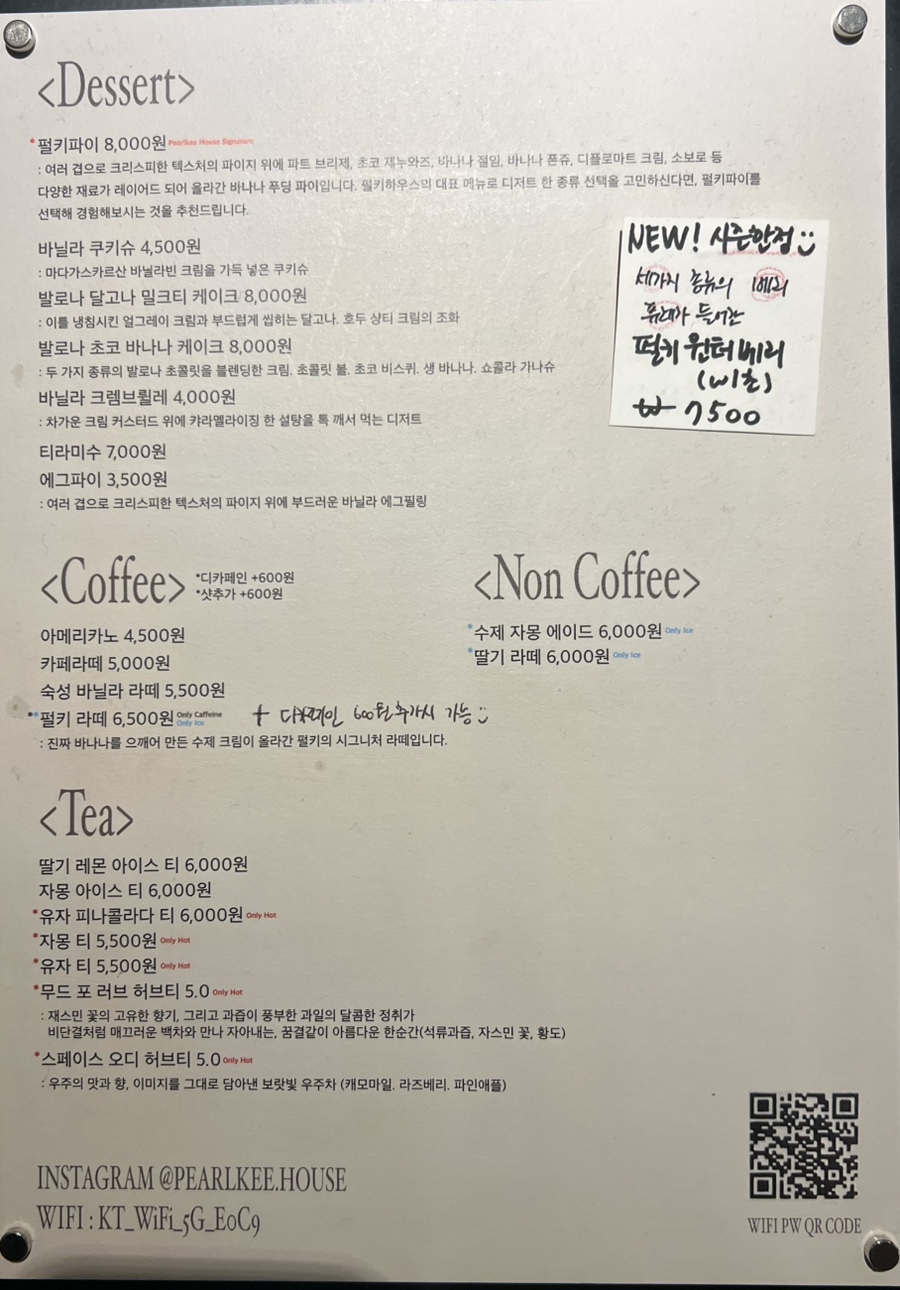 <Dessert>
*펄키파이 8,000원 Pearlkee House Signature
: 여러 겹으로 크리스피한 텍스처의 파이지 위에 파트 브리제, 초코 제누와즈, 바나나 절임, 바나나 퐁쥬, 디플로마트 크림, 소보로 등
다양한 재료가 레이어드 되어 올라간 바나나 푸딩 파이입니다. 펄키하우스의 대표 메뉴로 디저트 한 종류 선택을 고민하신다면, 펄키파이를
선택해 경험해보시는 것을 추천드립니다.
바닐라 쿠키슈 4,500원
: 마다가스카르산 바닐라빈 크림을 가득 넣은 쿠키슈
발로나 달고나 밀크티 케이크 8,000원
: 이틀 냉침시킨 얼그레이 크림과 부드럽게 씹히는 달고나. 호두 샹티 크림의 조화
발로나 초코 바나나 케이크 8,000원
: 두 가지 종류의 발로나 초콜릿을 블렌딩한 크림. 초콜릿 볼. 초코 비스퀴. 생 바나나. 쇼콜라 가나슈
바닐라 크렘브륄레 4,000원
: 차가운 크림 커스터드 위에 캬라멜라이징 한 설탕을 톡 깨서 먹는 디저트
티라미수 7,000원
에그파이 3,500원
: 여러 겹으로 크리스피한 텍스처의 파이지 위에 부드러운 바닐라 에그필링
NEW! 시즌한정
세가지 종류의 베리
퓨레가 들어간
펄키 윈터베리
(w/초)
₩ 7500
<Coffee>
*디카페인 +600원
*샷추가 +600원
아메리카노 4,500원
카페라떼 5,000원
숙성 바닐라 라떼 5,500원
**펄키 라떼 6,500원 Only Caffeine Only Ice + 디카페인 600원 추가시 가능
: 진짜 바나나를 으깨어 만든 수제 크림이 올라간 펄키의 시그니처 라떼입니다.
<Non Coffee>
*수제 자몽 에이드 6,000원 Only Ice
*딸기 라떼 6,000원 Only Ice
<Tea>
딸기 레몬 아이스 티 6,000원
자몽 아이스 티 6,000원
*유자 피나콜라다 티 6,000원 Only Hot
*자몽 티 5,500원 Only Hot
*유자 티 5,500원 Only Hot
*무드 포 러브 허브티 5.0 Only Hot
: 재스민 꽃의 고유한 향기, 그리고 과즙이 풍부한 과일의 달콤한 정취가
비단결처럼 매끄러운 백차와 만나 자아내는, 꿈결같이 아름다운 한순간(석류과즙, 자스민 꽃, 황도)
*스페이스 오디 허브티 5.0 Only Hot
: 우주의 맛과 향, 이미지를 그대로 담아낸 보랏빛 우주차 (캐모마일. 라즈베리. 파인애플)
INSTAGRAM @PEARLKEE.HOUSE
WIFI : KT_WiFi_5G_E0C9
WIFI PW QR CODE